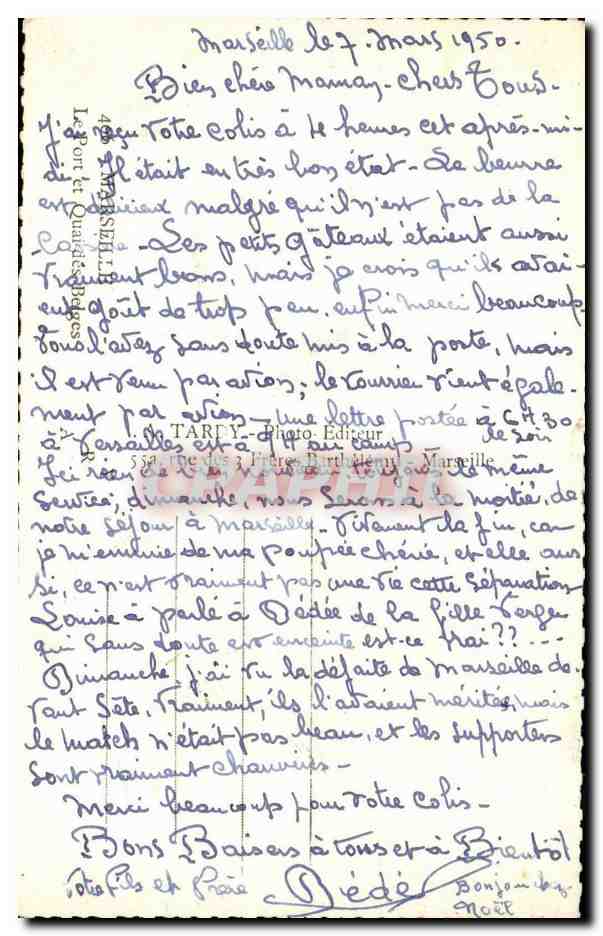 Marseille le 7. Mars 1950.
Bien chère Maman - chers Tous -
J'ai reçu votre colis à 4 heures cet après-mi-
di. Il était en très bon état - Le beurre
est délicieux malgré qu'il n'est pas de la
- Les petits gâteaux étaient aussi
vraiment bons, mais je crois qu'ils avai-
ent goût de trop peu, enfin merci beaucoup
Vous l'avez sans doute mis à la poste, mais
il est venu par avion, le courrier vient égale-
ment par avion - une lettre postée à 6H30
le soir
à Versailles est à au camp
Ici rien de toujours le même
service, dimanche, nous serons à la moitié de
notre séjour à Marseille - Vivement la fin, car
je m'ennuie de ma poupée chérie, et elle aus-
si, ce n'est vraiment pas une vie cette séparation
Louise à parlé à Dédée de la fille Verger
qui sans doute est enceinte est-ce vrai?? ...
Dimanche, j'ai vu la défaite de Marseille de-
vant Sète, vraiment, ils l'avaient méritée, mais
le match n'était pas beau, et les supporters
sont vraiment chauvins -
Merci beaucoup pour votre colis -
Bons Baisers à tous et à Bientôt
Votre fils et Frère Dédé
Bonjour chez
Noël
MARSEILLE
Le Port et Quai des Belges
A. TARDY - Photo-Editeur
55a, rue des 3 Frères Barthélemy - Marseille